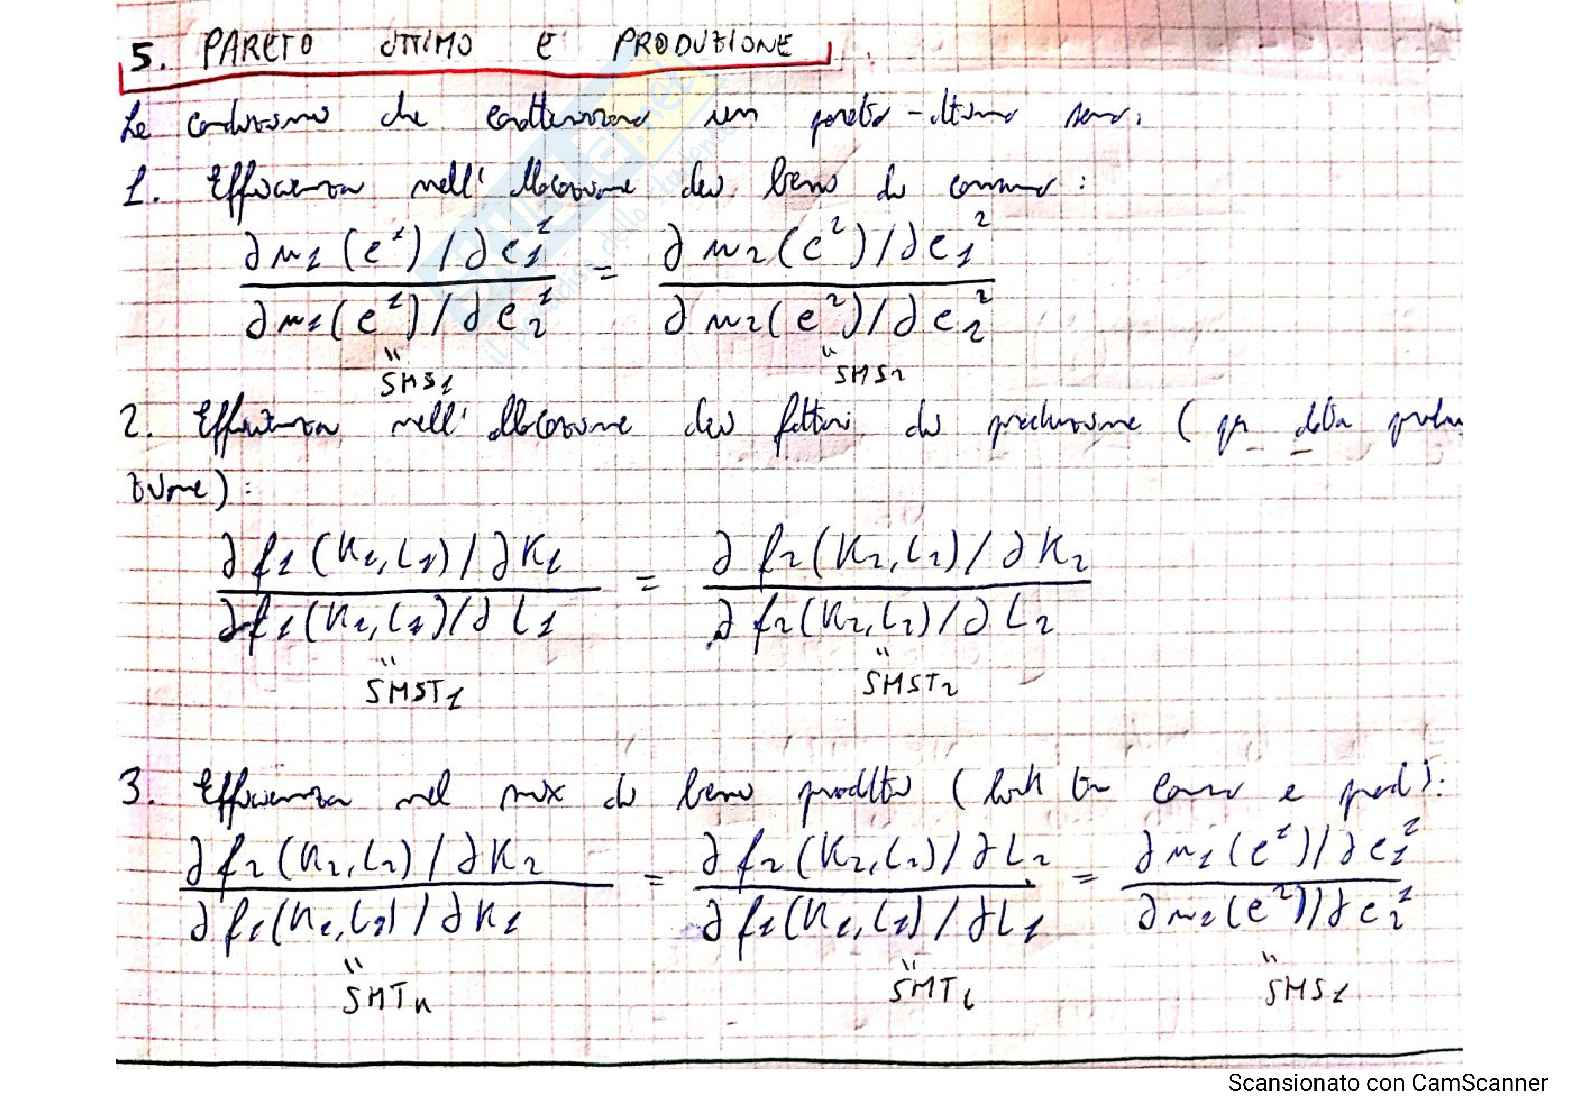 5. PARETO OTTIMO E PRODUZIONE
Le condizioni che caratterizzano un pareto-ottimo sono:
1. Efficienza nell'allocazione dei beni di consumo:
∂u₁(c¹)/∂c₁¹ / ∂u₁(c¹)/∂c₂¹ = ∂u₂(c²)/∂c₁² / ∂u₂(c²)/∂c₂²
SMS₁ SMS₂
2. Efficienza nell'allocazione dei fattori di produzione ( della produ
zione):
∂f₁(K₁,L₁)/∂K₁ / ∂f₁(K₁,L₁)/∂L₁ = ∂f₂(K₂,L₂)/∂K₂ / ∂f₂(K₂,L₂)/∂L₂
SMST₁ SMST₂
3. Efficienza nel mix di beni prodotti (link tra cons e prod):
∂f₂(K₂,L₂)/∂K₂ / ∂f₁(K₁,L₁)/∂K₁ = ∂f₂(K₂,L₂)/∂L₂ / ∂f₁(K₁,L₁)/∂L₁ = ∂u₁(c¹)/∂c₁¹ / ∂u₁(c¹)/∂c₂¹
SMT_K SMT_L SMS₁
Scansionato con CamScanner